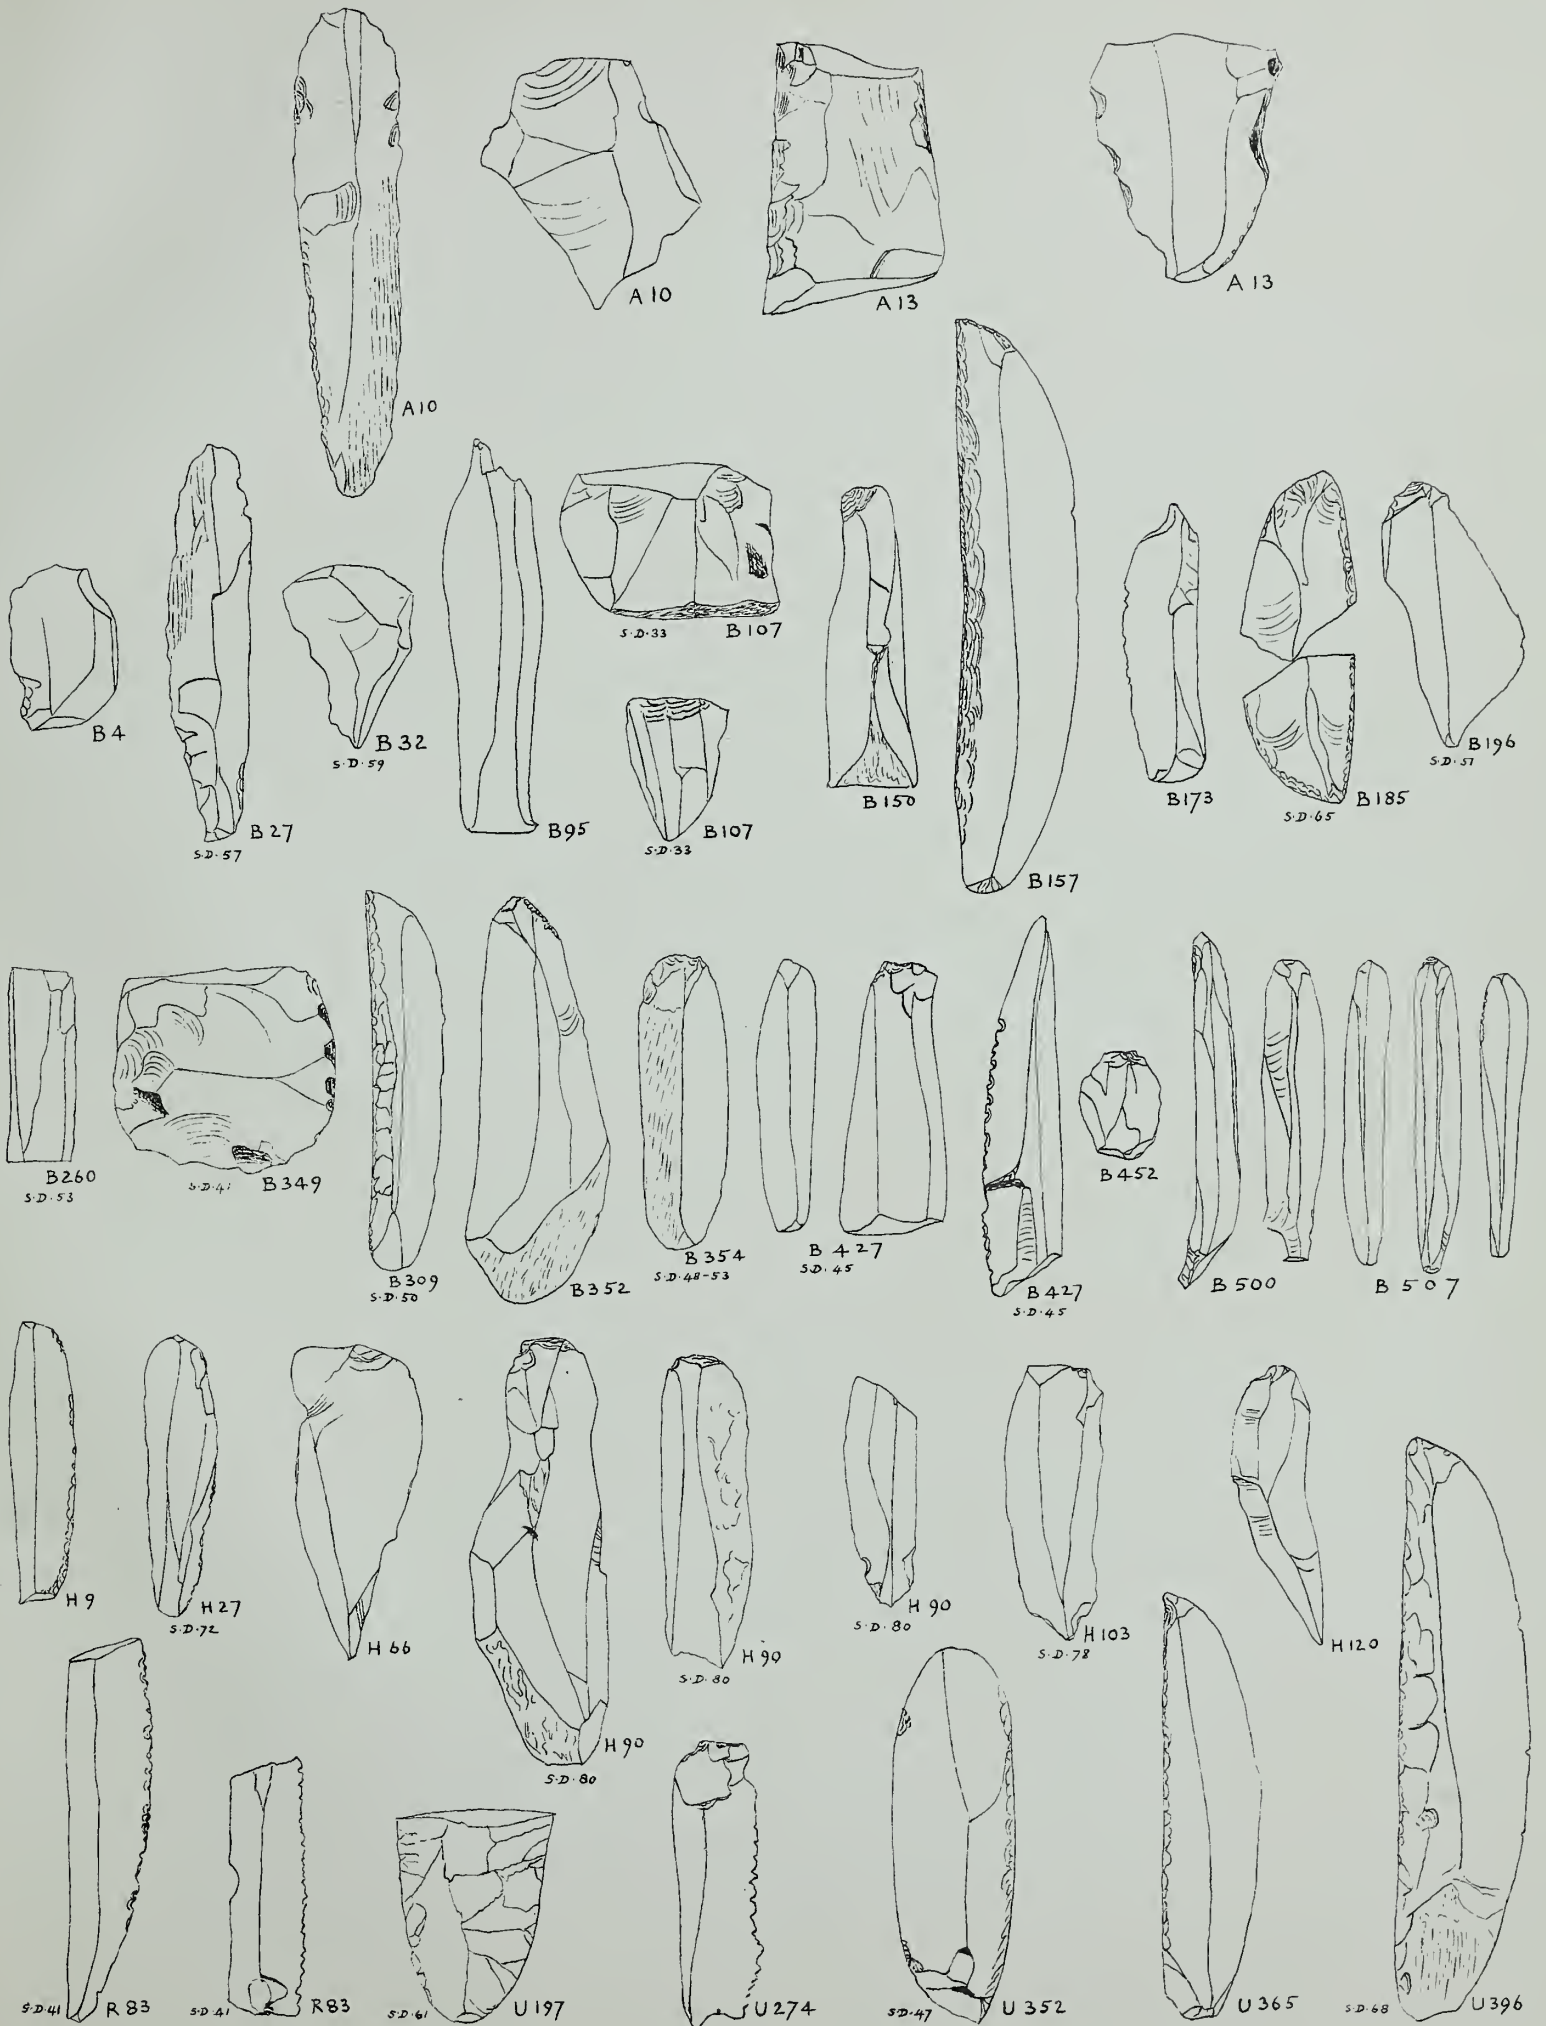 A10
A 10
A 13
A 13
B 4
B 27
S.D. 57
B 32
S.D. 59
B95
S.D. 33 B 107
B107
S.D. 33
B 150
B 157
B173
B185
S.D. 65
B196
S.D. 57
B260
S.D. 53
S.D. 41 B 349
B309
S.D. 50
B352
B 354
S.D. 48-53
B 427
S.D. 45
B 427
S.D. 45
B452
B 500
B 507
H 9
H 27
S.D. 72
H 66
H 90
S.D. 80
H 90
S.D. 80
H 90
S.D. 80
H 103
S.D. 78
H 120
S.D. 41 R 83
S.D. 41 R83
S.D. 61 U 197
U 274
S.D. 47 U 352
U 365
S.D. 68 U 396